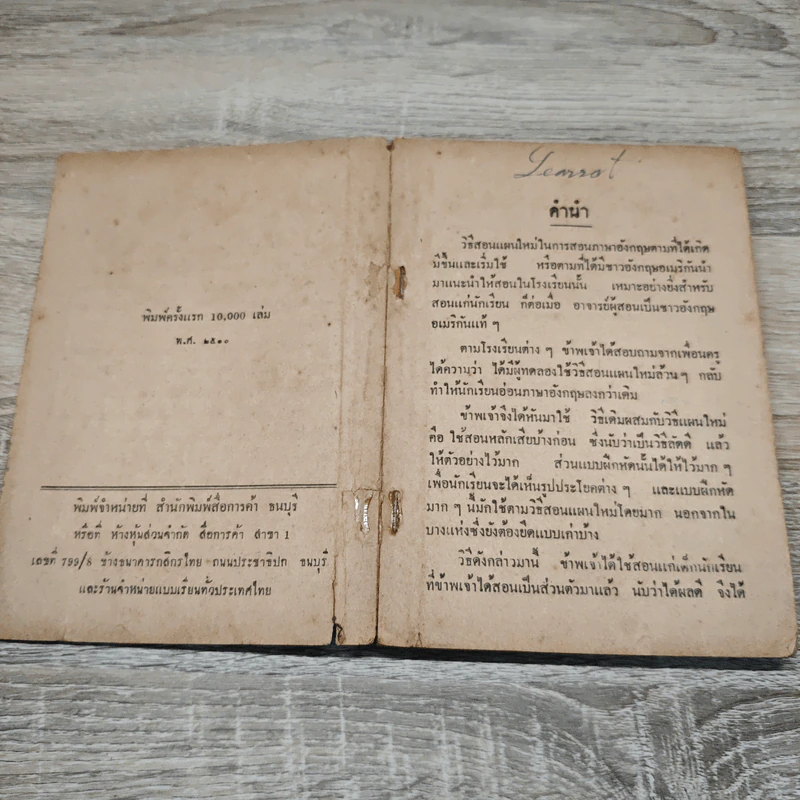 พิมพ์ครั้งแรก 10,000 เล่ม
พ.ศ. ๒๕๑๐
พิมพ์จำหน่ายที่ สำนักพิมพ์สื่อการค้า ธนบุรี
หรือที่ ห้างหุ้นส่วนจำกัด สื่อการค้า สาขา 1
เลขที่ 799/8 ข้างธนาคารกสิกรไทย ถนนประชาธิปก ธนบุรี
และร้านจำหน่ายแบบเรียนทั่วประเทศไทย
คำนำ
วิธีสอนแผนใหม่ในการสอนภาษาอังกฤษตามที่ได้เกิด
มีขึ้นและเริ่มใช้ หรือตามที่ได้มีชาวอังกฤษอเมริกันนำ
มาแนะนำให้สอนในโรงเรียนนั้น เหมาะอย่างยิ่งสำหรับ
สอนแก่นักเรียน ก็ต่อเมื่อ อาจารย์ผู้สอนเป็นชาวอังกฤษ
อเมริกันแท้ ๆ
ตามโรงเรียนต่าง ๆ ข้าพเจ้าได้สอบถามจากเพื่อนครู
ได้ความว่า ได้มีผู้ทดลองใช้วิธีสอนแผนใหม่ล้วน ๆ กลับ
ทำให้นักเรียนอ่อนภาษาอังกฤษลงกว่าเดิม
ข้าพเจ้าจึงได้หันมาใช้ วิธีเดิมผสมกับวิธีแผนใหม่
คือ ใช้สอนหลักเสียบ้างก่อน ซึ่งนับว่าเป็นวิธีลัดดี แล้ว
ให้ตัวอย่างไว้มาก ส่วนแบบฝึกหัดนั้นได้ให้ไว้มาก ๆ
เพื่อนักเรียนจะได้เห็นรูปประโยคต่าง ๆ และแบบฝึกหัด
มาก ๆ นี้มักใช้ตามวิธีสอนแผนใหม่โดยมาก นอกจากใน
บางแห่งซึ่งยังต้องยึดแบบเก่าบ้าง
วิธีดังกล่าวมานี้ ข้าพเจ้าได้ใช้สอนแก่เด็กนักเรียน
ที่ข้าพเจ้าได้สอนเป็นส่วนตัวมาแล้ว นับว่าได้ผลดี จึงได้